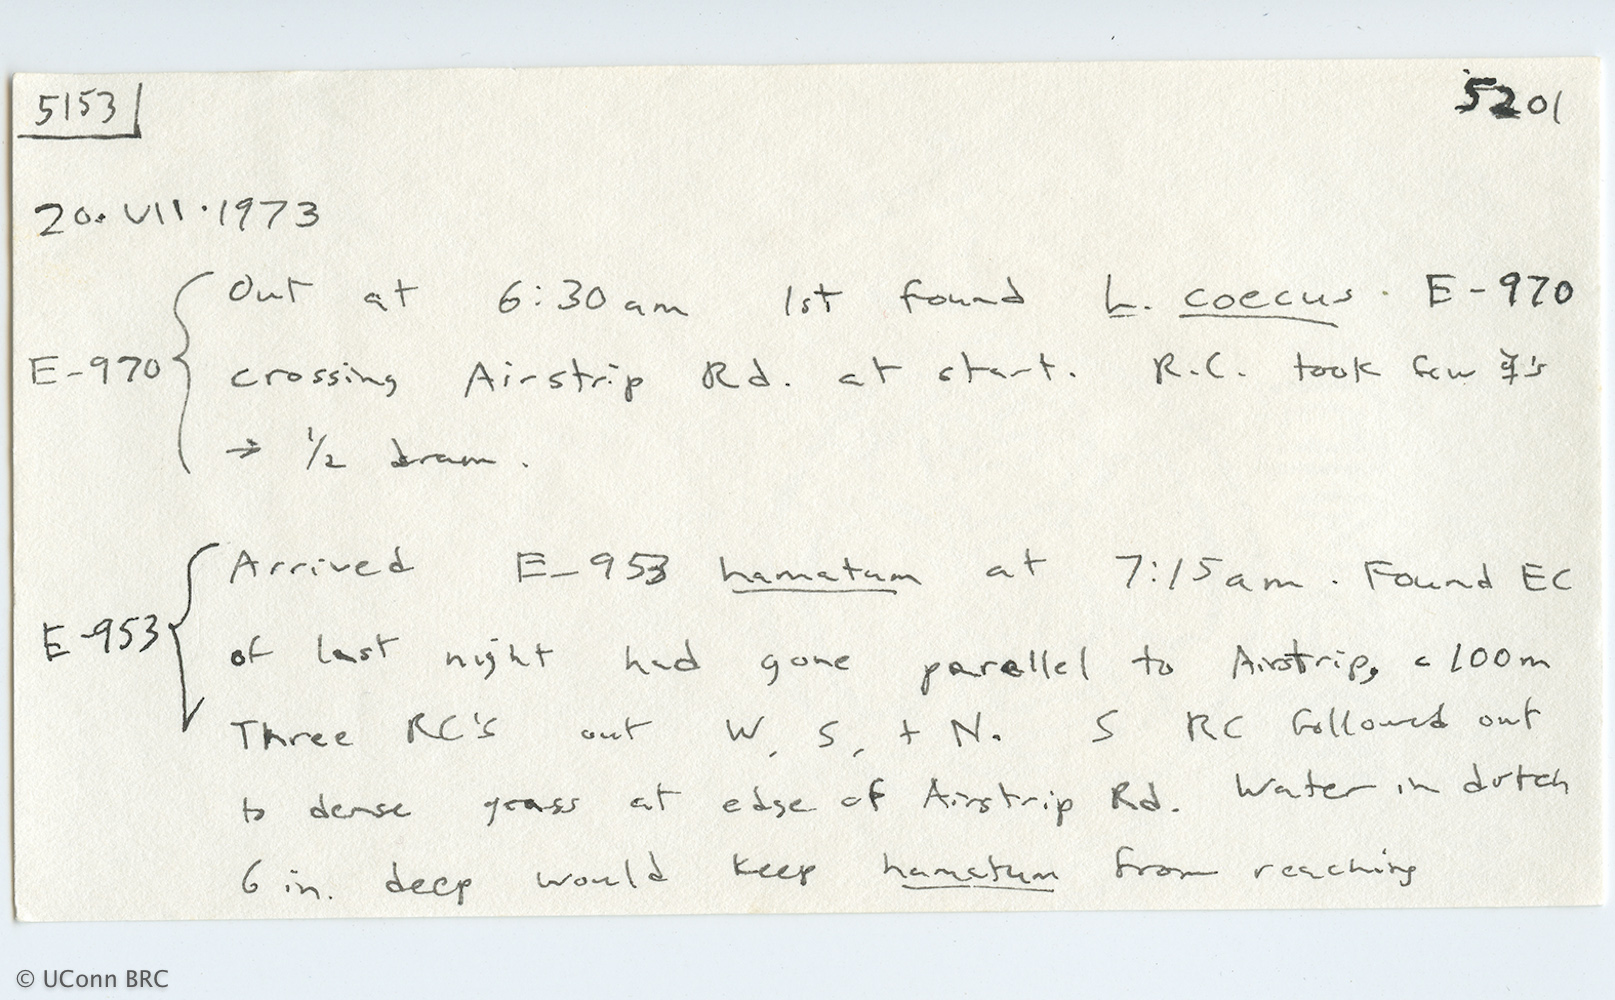 5153
5201
20.VII.1973
Out at 6:30 am 1st found L. coecus. E-970
E-970 crossing Airstrip Rd. at start. R.C. took few ☿'s
→ 1/2 dram.
Arrived E-953 hamatum at 7:15 am. Found EC
E-953 of last night had gone parallel to Airstrip, c 100m
Three RC's out W, S, + N. S RC followed out
to dense grass at edge of Airstrip Rd. Water in dutch
6 in. deep would keep hamatum from reaching
© UConn BRC